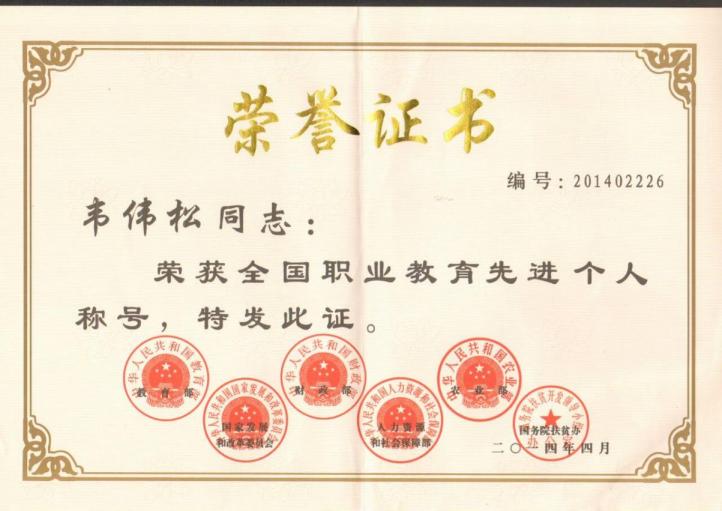 荣誉证书
编号：201402226
韦伟松同志：
荣获全国职业教育先进个人
称号，特发此证。
中华人民共和国教育部
教育部
中华人民共和国国家发展和改革委员会
国家发展
和改革委员会
中华人民共和国财政部
财政部
中华人民共和国人力资源和社会保障部
人力资源
和社会保障部
中华人民共和国农业部
农业部
国务院扶贫开发领导小组
办公室
国务院扶贫办
二〇一四年四月